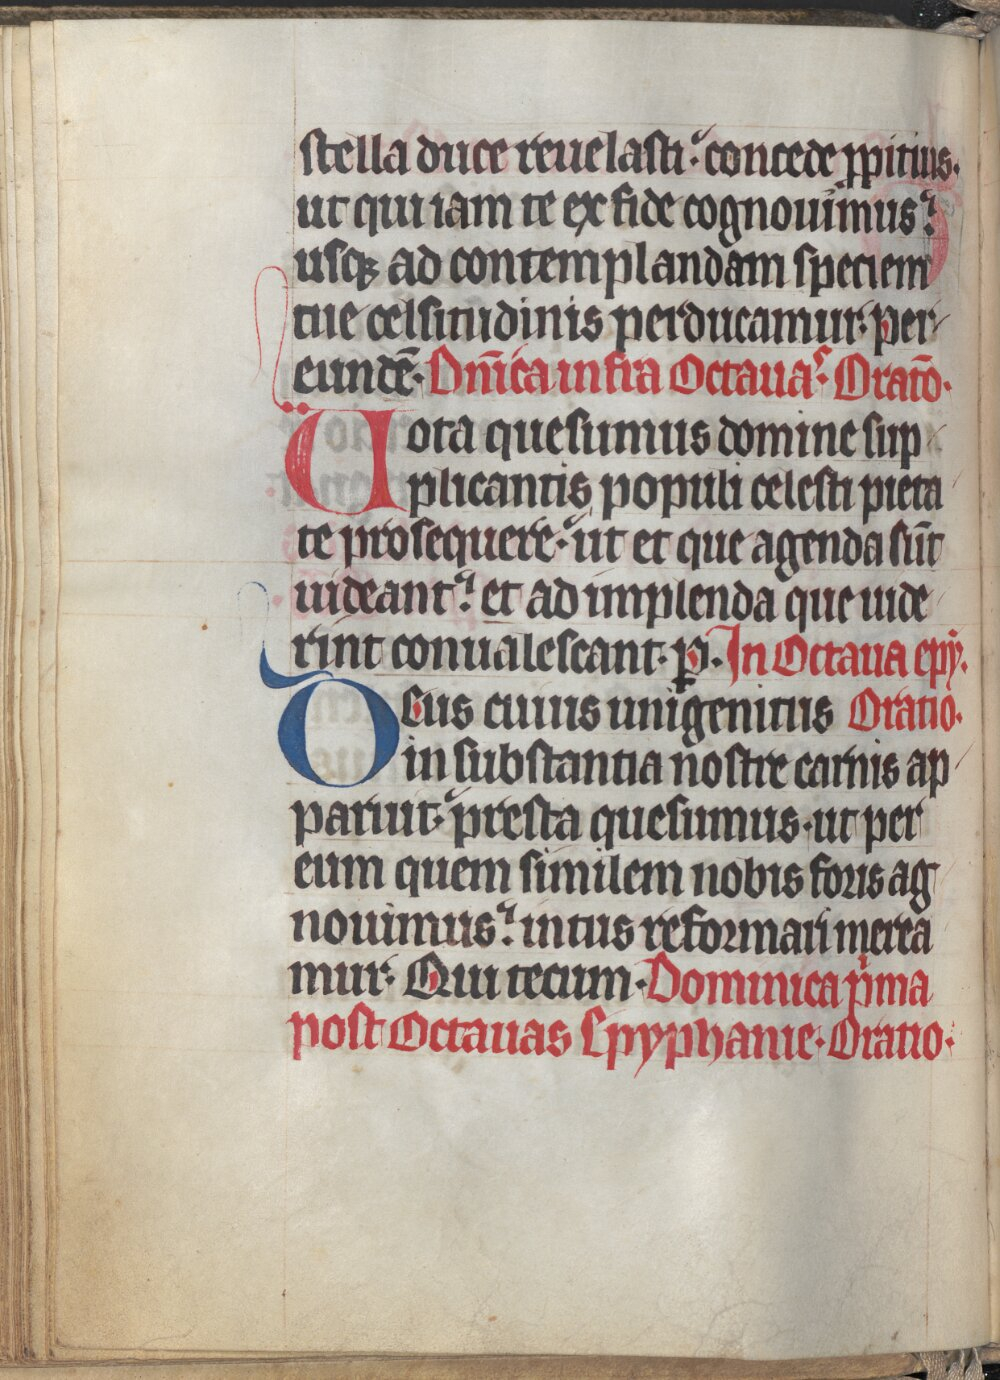 stella duce reuelasti· concede ꝓpitius·
ut qui iam te ex fide cognouimus·
usqꝫ ad contemplandam speciem
tue celsitudinis perducamur· per
eundē· Dn̄ica infra Octauaˢ· Orat̄o·
Uota quesumus domine sup
plicantis populi celesti pieta
te prosequere· ut et que agenda sūt
uideant· et ad implenda que uide
rint conualescant· p̲· In Octaua epy̅·
Deus cuius unigenitus Oratio·
in substantia nostre carnis ap
paruit· presta quesumus· ut per
eum quem similem nobis foris ag
nouimus· intus reformari merea
mur· Qui tecum· Dominica pͥma
post Octauas Epyphanie· Oratio·